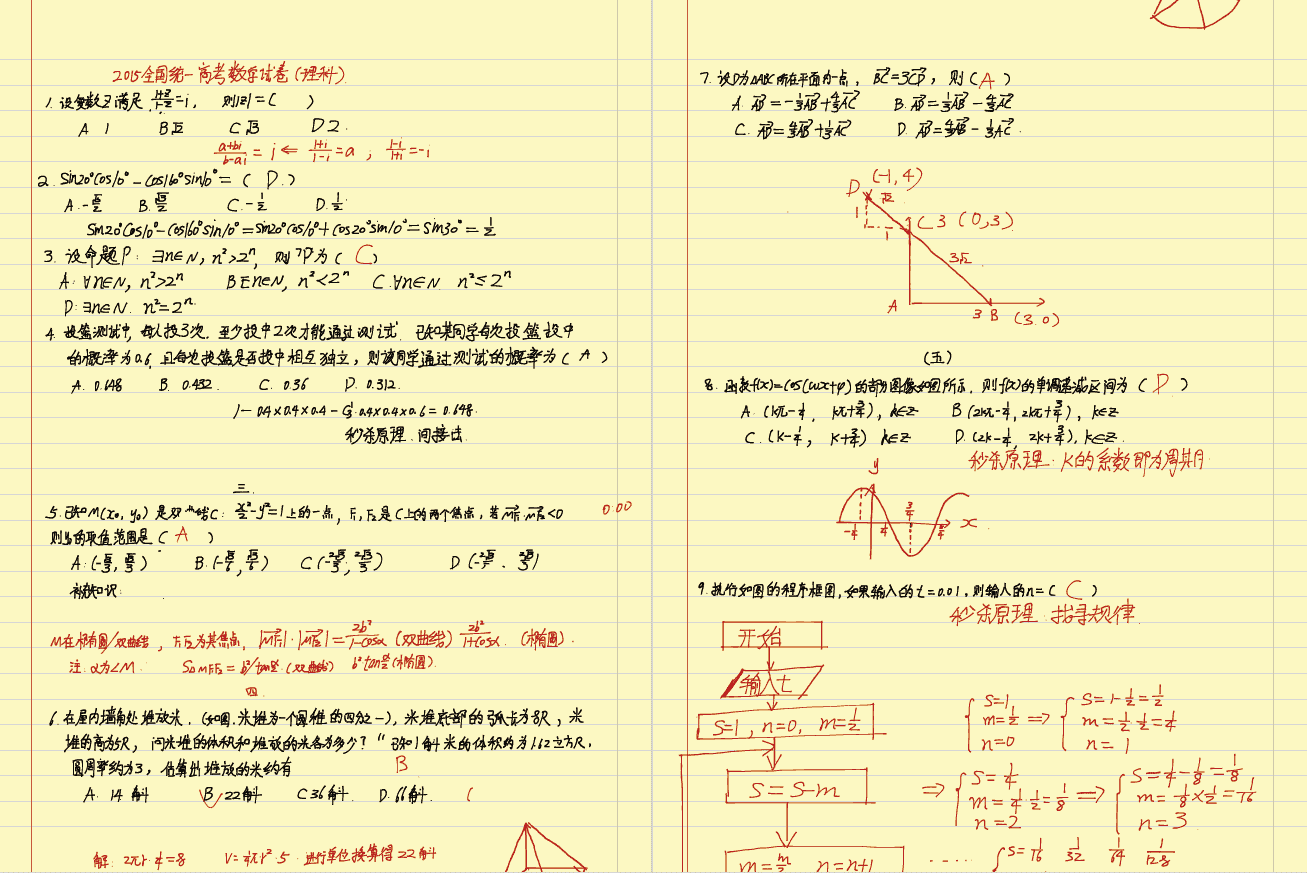 2015全国统一高考数学试卷(理科)
1. 设复数Z满足 (1+z)/(1-z)=i, 则|z|=( )
A 1 B √2 C √3 D 2.
(a+bi)/(b-ai) = i ⇐ (1+i)/(1-i)=a ; (1-i)/(1+i)=-i
2. Sin20°Cos10°-Cos160°sin10°=( D )
A.-√3/2 B.√3/2 C.-1/2 D.1/2
Sin20°Cos10°-Cos160°Sin10°=Sin20°Cos10°+Cos20°sin10°=Sin30°=1/2
3. 设命题P: ∃n∈N, n²>2ⁿ, 则¬P为( C )
A.∀n∈N, n²>2ⁿ B ∃n∈N, n²<2ⁿ C.∀n∈N n²≤2ⁿ
D:∃n∈N. n²=2ⁿ.
4. 投篮测试中, 每人投3次. 至少投中2次才能通过测试. 已知某同学每次投篮投中
的概率为0.6, 且每次投篮是否投中相互独立, 则该同学通过测试的概率为( A )
A. 0.648 B. 0.432 C. 0.36 D. 0.312.
1-0.4×0.4×0.4-C₃¹0.4×0.4×0.6=0.648.
秒杀原理.间接法
三.
5. 已知M(x₀, y₀)是双曲线C: x²/2-y²=1上的一点, F₁,F₂是C上的两个焦点, 若MF₁·MF₂<0
0:00
则y₀的取值范围是( A )
A.(-√3/3, √3/3) B.(-√3/6, √3/6) C(-2√2/3, 2√2/3) D
补充知识:
M在椭圆/双曲线, F₁F₂为其焦点, |MF₁|·|MF₂|=2b²/(1-cosα) (双曲线) 2b²/(1+cosα). (椭圆).
注:α为∠M. S△MF₁F₂=b²/tan(α/2).(双曲线) b²tan(α/2)(椭圆).
四.
6. 在屋内墙角处堆放米. (如图.米堆为一个圆锥的四分之一), 米堆底部的弧长为8尺, 米
堆的高为5尺, 问米堆的体积和堆放的米各为多少?" 已知1斛米的体积约为1.62立方尺,
圆周率约为3, 估算出堆放的米约有 B
A. 14斛 B 22斛 C 36斛. D. 66斛. (
解: 2πr·1/4=8 V=1/4πr²·5 · 进行单位换算得22斛
7. 设D为△ABC所在平面内一点, BC=3CD, 则( A )
A. AD=-1/3AB+4/3AC B. AD=1/3AB-4/3AC
C. AD=4/3AB+1/3AC D. AD=4/3AB-1/3AC
D (-1,4)
√2
1
C 3 (0,3)
1
3√2
A
3 B (3.0)
(五)
8. 函数f(x)=cos(ωx+φ)的部分图像如图所示, 则f(x)的单调递减区间为( D )
A. (kπ-1/4, kπ+3/4), k∈Z B (2kπ-1/4, 2kπ+3/4), k∈Z
C. (k-1/4, k+3/4) k∈Z D. (2k-1/4, 2k+3/4), k∈Z.
秒杀原理.K的系数即为周期.
y
3/4
x
-1/4 1/4 5/4
9. 执行如图的程序框图, 如果输入的t=0.01, 则输入的n=( C )
秒杀原理.找寻规律
开始
输入t
S=1, n=0, m=1/2
S=S-m
m=m/2 n=n+1
S=1, m=1/2 n=0 ⇒ S=1-1/2=1/2 m=1/2·1/2=1/4 n=1
⇒ S=1/4 m=1/4·1/2=1/8 n=2 ⇒ S=1/4-1/8=1/8 m=1/8×1/2=1/16 n=3
..... S=1/16 1/32 1/64 1/128